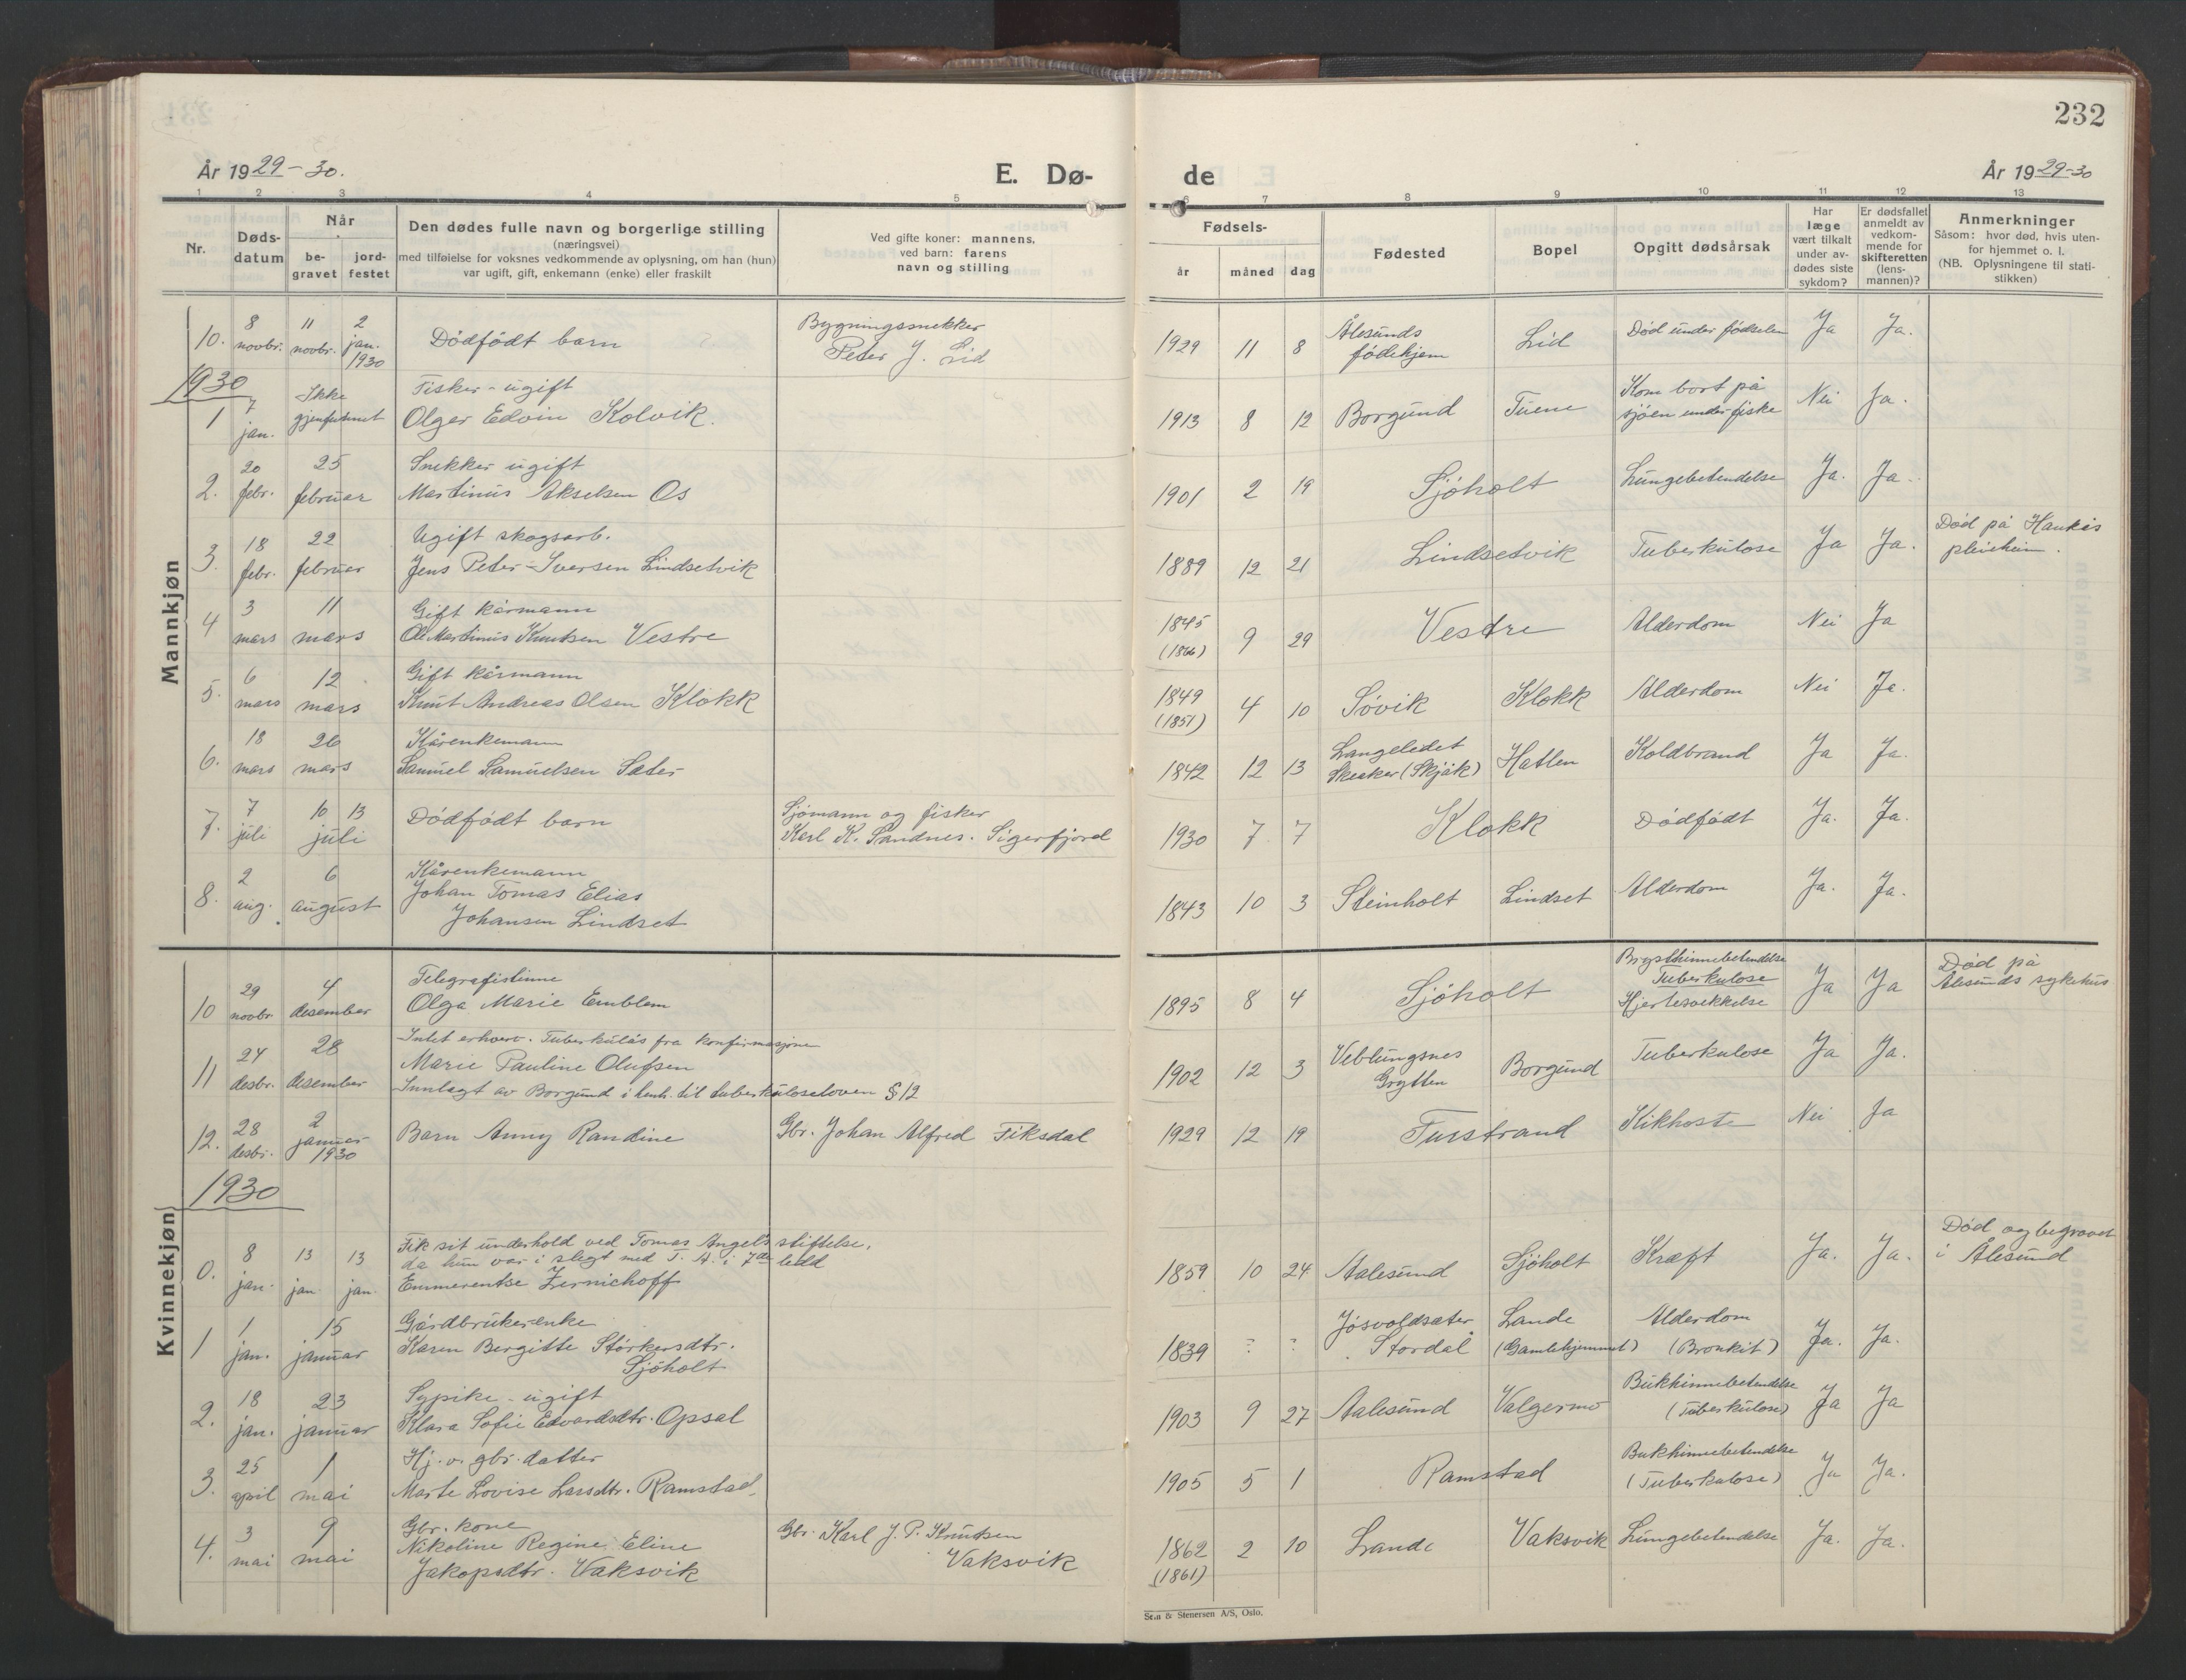 232
År 1929-30.
E. Dø-
de
År 1929-30
1 2 3 4 5 6 7 8 9 10 11 12 13
Nr.
Døds-
datum
Når
be-
gravet
jord-
festet
Den dødes fulle navn og borgerlige stilling
(næringsvei)
med tilføielse for voksnes vedkommende av oplysning, om han (hun)
var ugift, gift, enkemann (enke) eller fraskilt
Ved gifte koner: mannens.
ved barn: farens
navn og stilling
Fødsels-
år
måned
dag
Fødested
Bopel
Opgitt dødsårsak
Har
læge
vært tilkalt
under av-
dødes siste
sykdom?
Er dødsfallet
anmeldt av
vedkom-
mende for
skifteretten
(lens-
mannen)?
Anmerkninger
Såsom: hvor død, hvis uten-
for hjemmet o. l.
(NB. Oplysningene til stati-
stikken)
Mannkjøn
10. 8 novbr. 11 novbr. 2 jan. 1930
Dödfödt barn
Bygningssnekker
Peter J. Lid
1929 11 8
Ålesunds
födehjem
Lid
Död under födselen
Ja Ja.
1930
1 7 jan. Ikke
gjenfunnet
Fisker - ugift
Olger Edvin Kolvik.
1913 8 12 Borgund Tuene
Kom bort på
sjöen under fiske
Nei Ja.
2. 20 febr. 25 februar
Snekker ugift
Martinus Akselsen Os
1901 2 19 Sjöholt Lungebetendelse Ja. Ja.
3. 18 febr. 22 februar
Ugift skogsarb.
Jens Peter Iversen Lindsetvik
1889 12 21 Lindsetvik Tuberkulose Ja Ja.
Död på Haukås
pleieheim.
4 3 mars 11 mars
Gift kårmann
Ole Martinus Knutsen Vestre
1845
(1846)
9 29 Vestre Alderdom Nei Ja
5. 6 mars 12 mars
Gift kårmann
Knut Andreas Olsen Klokk
1849
(1851)
4 10 Søvik Klokk Alderdom Nei Ja.
6. 18 mars 26 mars
Kårenkemann
Samuel Samuelsen Sæter
1842 12 13
Langeledet
Skeaker (Skjåk)
Hatlen Koldbrand Ja Ja.
7. 7 juli 10 13 juli
Dödfödt barn
Sjömann og fisker
Karl K. Sandnes. Sigerfjord
1930 7 7 Klokk Dödfödt Ja. Ja.
8. 2 aug. 6 august
Kårenkemann
Johan Tomas Elias
Johansen Lindset
1843 10 3 Steinholt Lindset Alderdom Ja. Ja.
Kvinnekjøn
10 29 novbr 4 desember
Telegrafistinne
Olga Marie Emblem
1895 8 4 Sjöholt
Brysthinnebetendelse
Tuberkulose
Hjertesvekkelse
Ja Ja
Död på
Ålesunds sykehus
11 24 desbr. 28 desember
Intet erhverv. Tuberkuløs fra konfirmasjonen
Marie Pauline Olufsen
Innlagt av Borgund i henh. til tuberkuloseloven § 12
1902 12 3
Veblungsnes
Grytten
Borgund Tuberkulose Ja Ja.
12. 28 desbr. 2 januar 1930
Barn Anny Randine
Gbr. Johan Alfred Fiksdal
1929 12 19 Turstrand Kikhoste Nei Ja
1930
0. 8 jan. 13 jan 13 jan.
Fik sit underhold ved Tomas Angel's stiftelse,
da hun var i slegt med T. A. i 7de ledd
Emmerentse Zernichoff
1859 10 24 Aalesund Sjöholt Kræft Ja. Ja.
Död og begravet
i Ålesund
1 1 jan. 15 januar
Gårdbrukerenke
Karen Bergitte Størkersdtr.
Sjöholt
1839 : :
Jøsvoldsæter
Stordal
Lande
(Gamlehjemmet)
Alderdom
(Bronkit)
Ja. Ja.
2. 18 jan. 23 januar
Sypike - ugift
Klara Sofie Edvardsdtr. Opsal
1903 9 27 Aalesund Valgermo
Bukhinnebetendelse
(Tuberkulose)
Ja Ja
3. 25 april 1 mai
Hj. v. gbr. datter
Marte Lovise Larsdtr. Ramstad
1905 5 1 Ramstad
Bukhinnebetendelse
(Tuberkulose)
Ja Ja.
4. 3 mai 9 mai
Gbr. kone
Nikoline Regine Eline
Jakopsdtr. Vaksvik
Gbr. Karl J. P. Knutsen
Vaksvik
1862
(1861)
2 10 Lande Vaksvik Lungebetendelse Ja. Ja.
Sten & Stenersen A/S, Oslo.